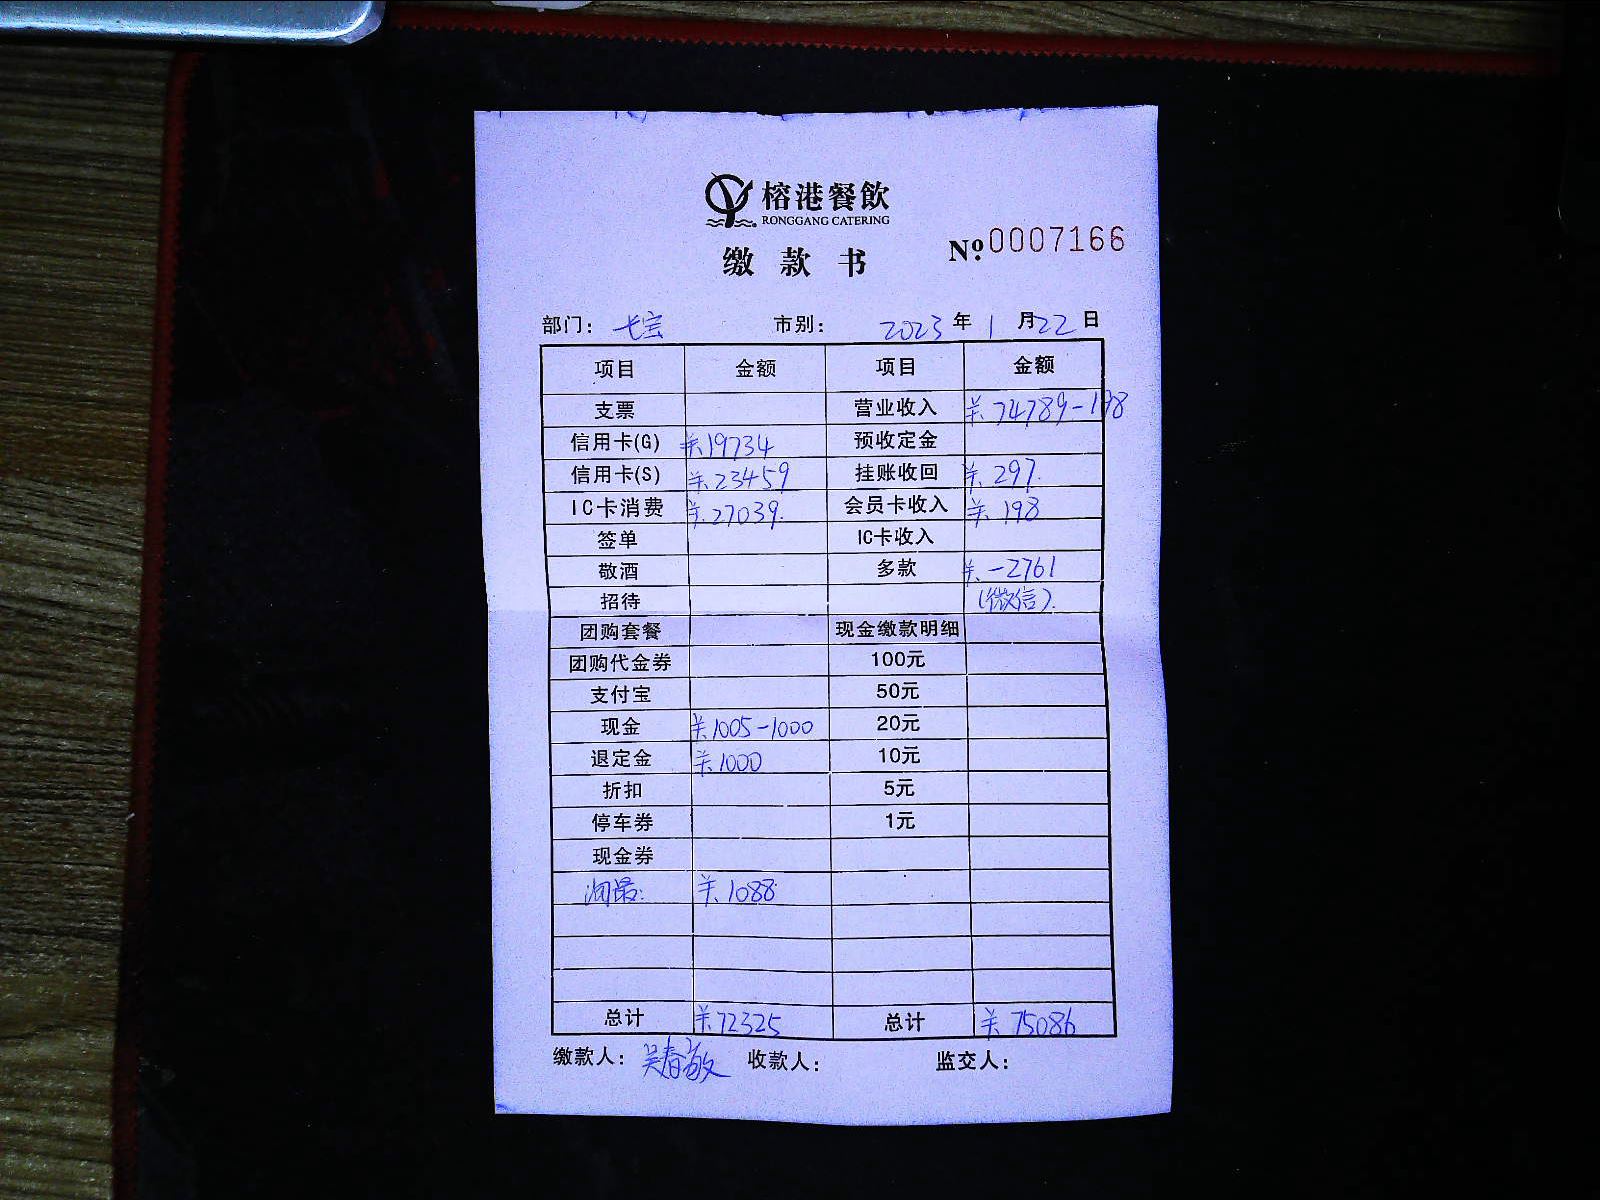 榕港餐飲
RONGGANG CATERING
缴款书 Nº 0007166
部门: 七宝 市别: 2023年1月22日
项目 金额 项目 金额
支票 营业收入 ¥.74789-198
信用卡(G) ¥19734 预收定金
信用卡(S) ¥.23459 挂账收回 ¥.297.
IC卡消费 ¥.27039. 会员卡收入 ¥.198
签单 IC卡收入
敬酒 多款 ¥.-2761
招待 (微信).
团购套餐 现金缴款明细
团购代金券 100元
支付宝 50元
现金 ¥1005-1000 20元
退定金 ¥.1000 10元
折扣 5元
停车券 1元
现金券
¥.1088
总计 ¥.72325 总计 ¥.75086
缴款人: 吴春敏 收款人: 监交人: